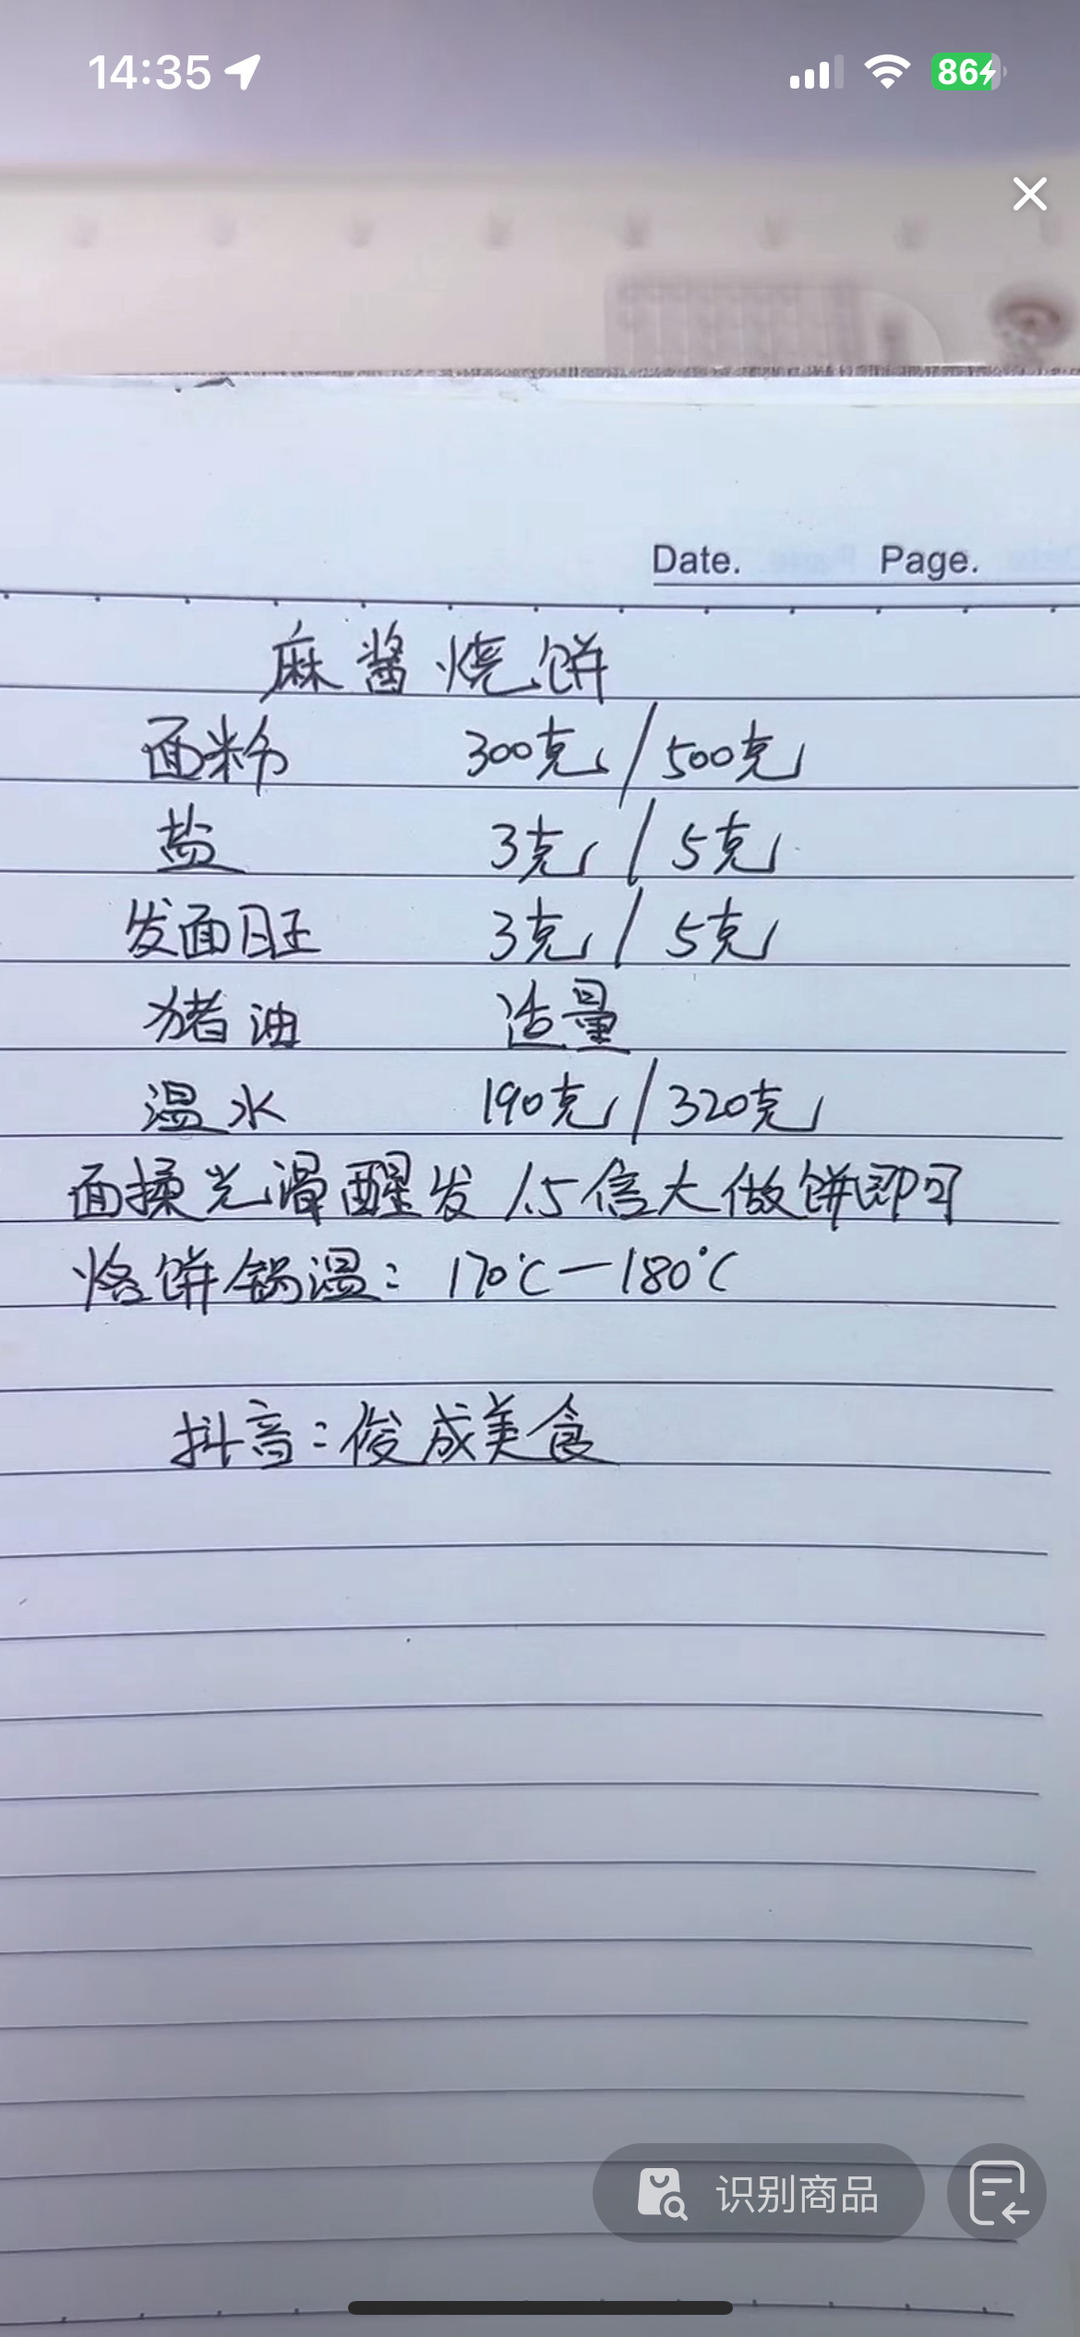 14:35
86
Date. Page.
麻酱烧饼
面粉 300克/500克
盐 3克/5克
发面旺 3克/5克
猪油 适量
温水 190克/320克
面揉光滑醒发1.5倍大做饼即可
烙饼锅温：170℃—180℃
抖音：俊成美食
识别商品